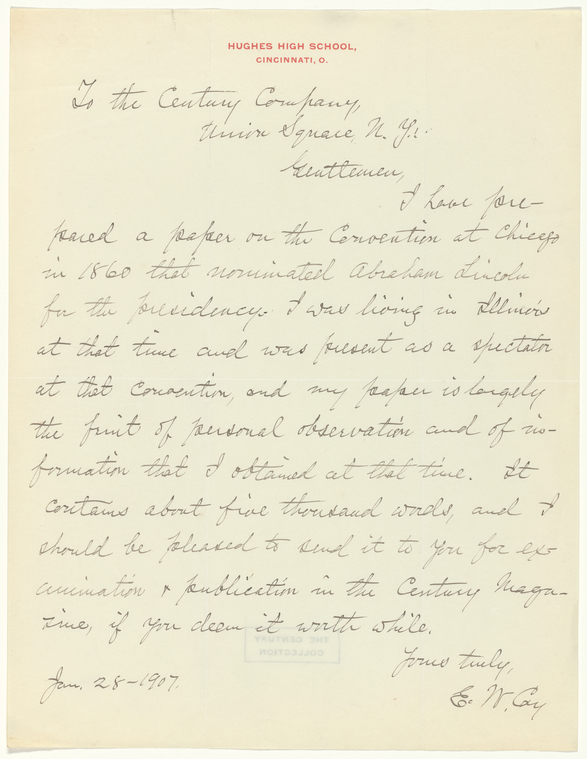 HUGHES HIGH SCHOOL,
CINCINNATI, O.
To the Century Company,
Union Square, N. Y.
Gentlemen,
I have pre-
pared a paper on the Convention at Chicago
in 1860 that nominated Abraham Lincoln
for the presidency. I was living in Illinois
at that time and was present as a spectator
at that convention, and my paper is largely
the fruit of personal observation and of in-
formation that I obtained at that time. It
contains about five thousand words, and I
should be pleased to send it to you for ex-
amination & publication in the Century Maga-
zine, if you deem it worth while.
THE CENTURY
COLLECTION
Yours truly,
Jan. 28-1907.
E. W. Coy